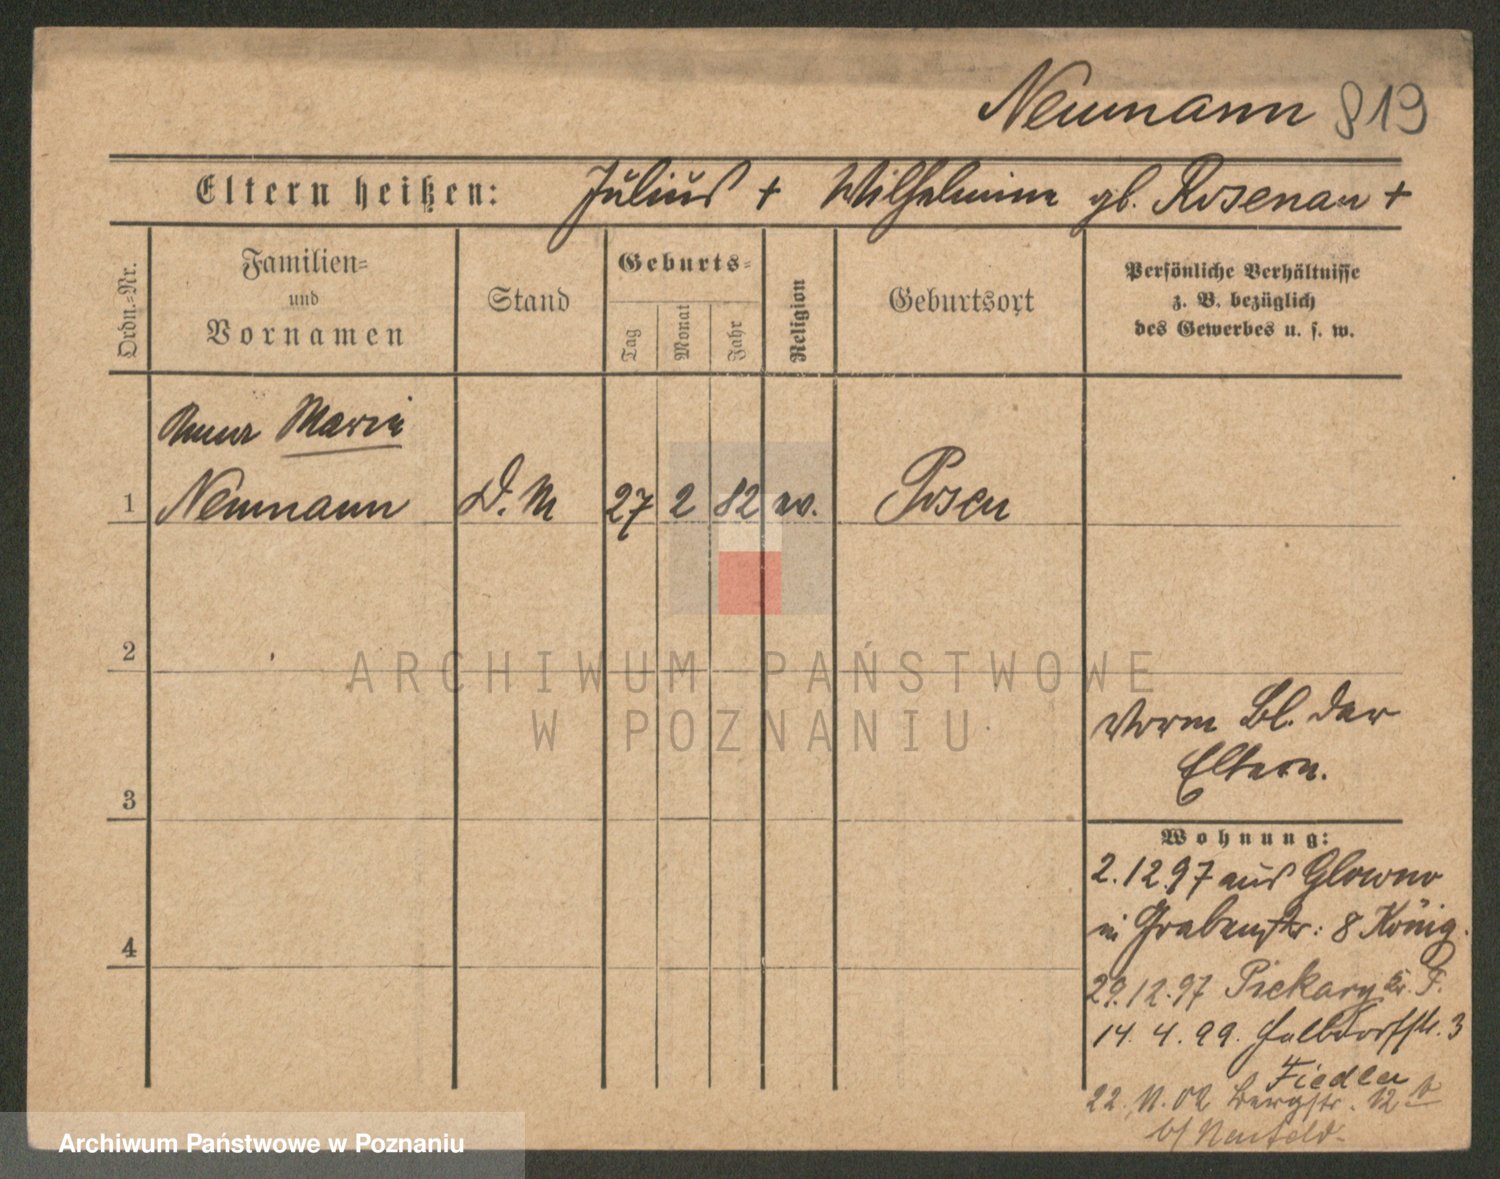 Neumann 819
Eltern heißen: Julius + Wilhelmine gb. Rosenau +
Ordn.-Nr.
Familien-
und
Vornamen
Stand
Geburts-
Tag
Monat
Jahr
Religion
Geburtsort
Persönliche Verhältnisse
z. B. bezüglich
des Gewerbes u. s. w.
Anna Marie
1 Neumann D. M 27 2 82 ev. Posen
2
3
4
Vorm Bl. der
Eltern.
Wohnung:
2.12.97 aus Glowno
in Grabenstr: 8 König.
29.12.97 Piekary
14. 4. 99. Halbdorfstr. 3
Fiedler
22. 11. 02 Bergstr. 12 b
b/ Neufeld
ARCHIWUM PAŃSTWOWE
W POZNANIU
Archiwum Państwowe w Poznaniu